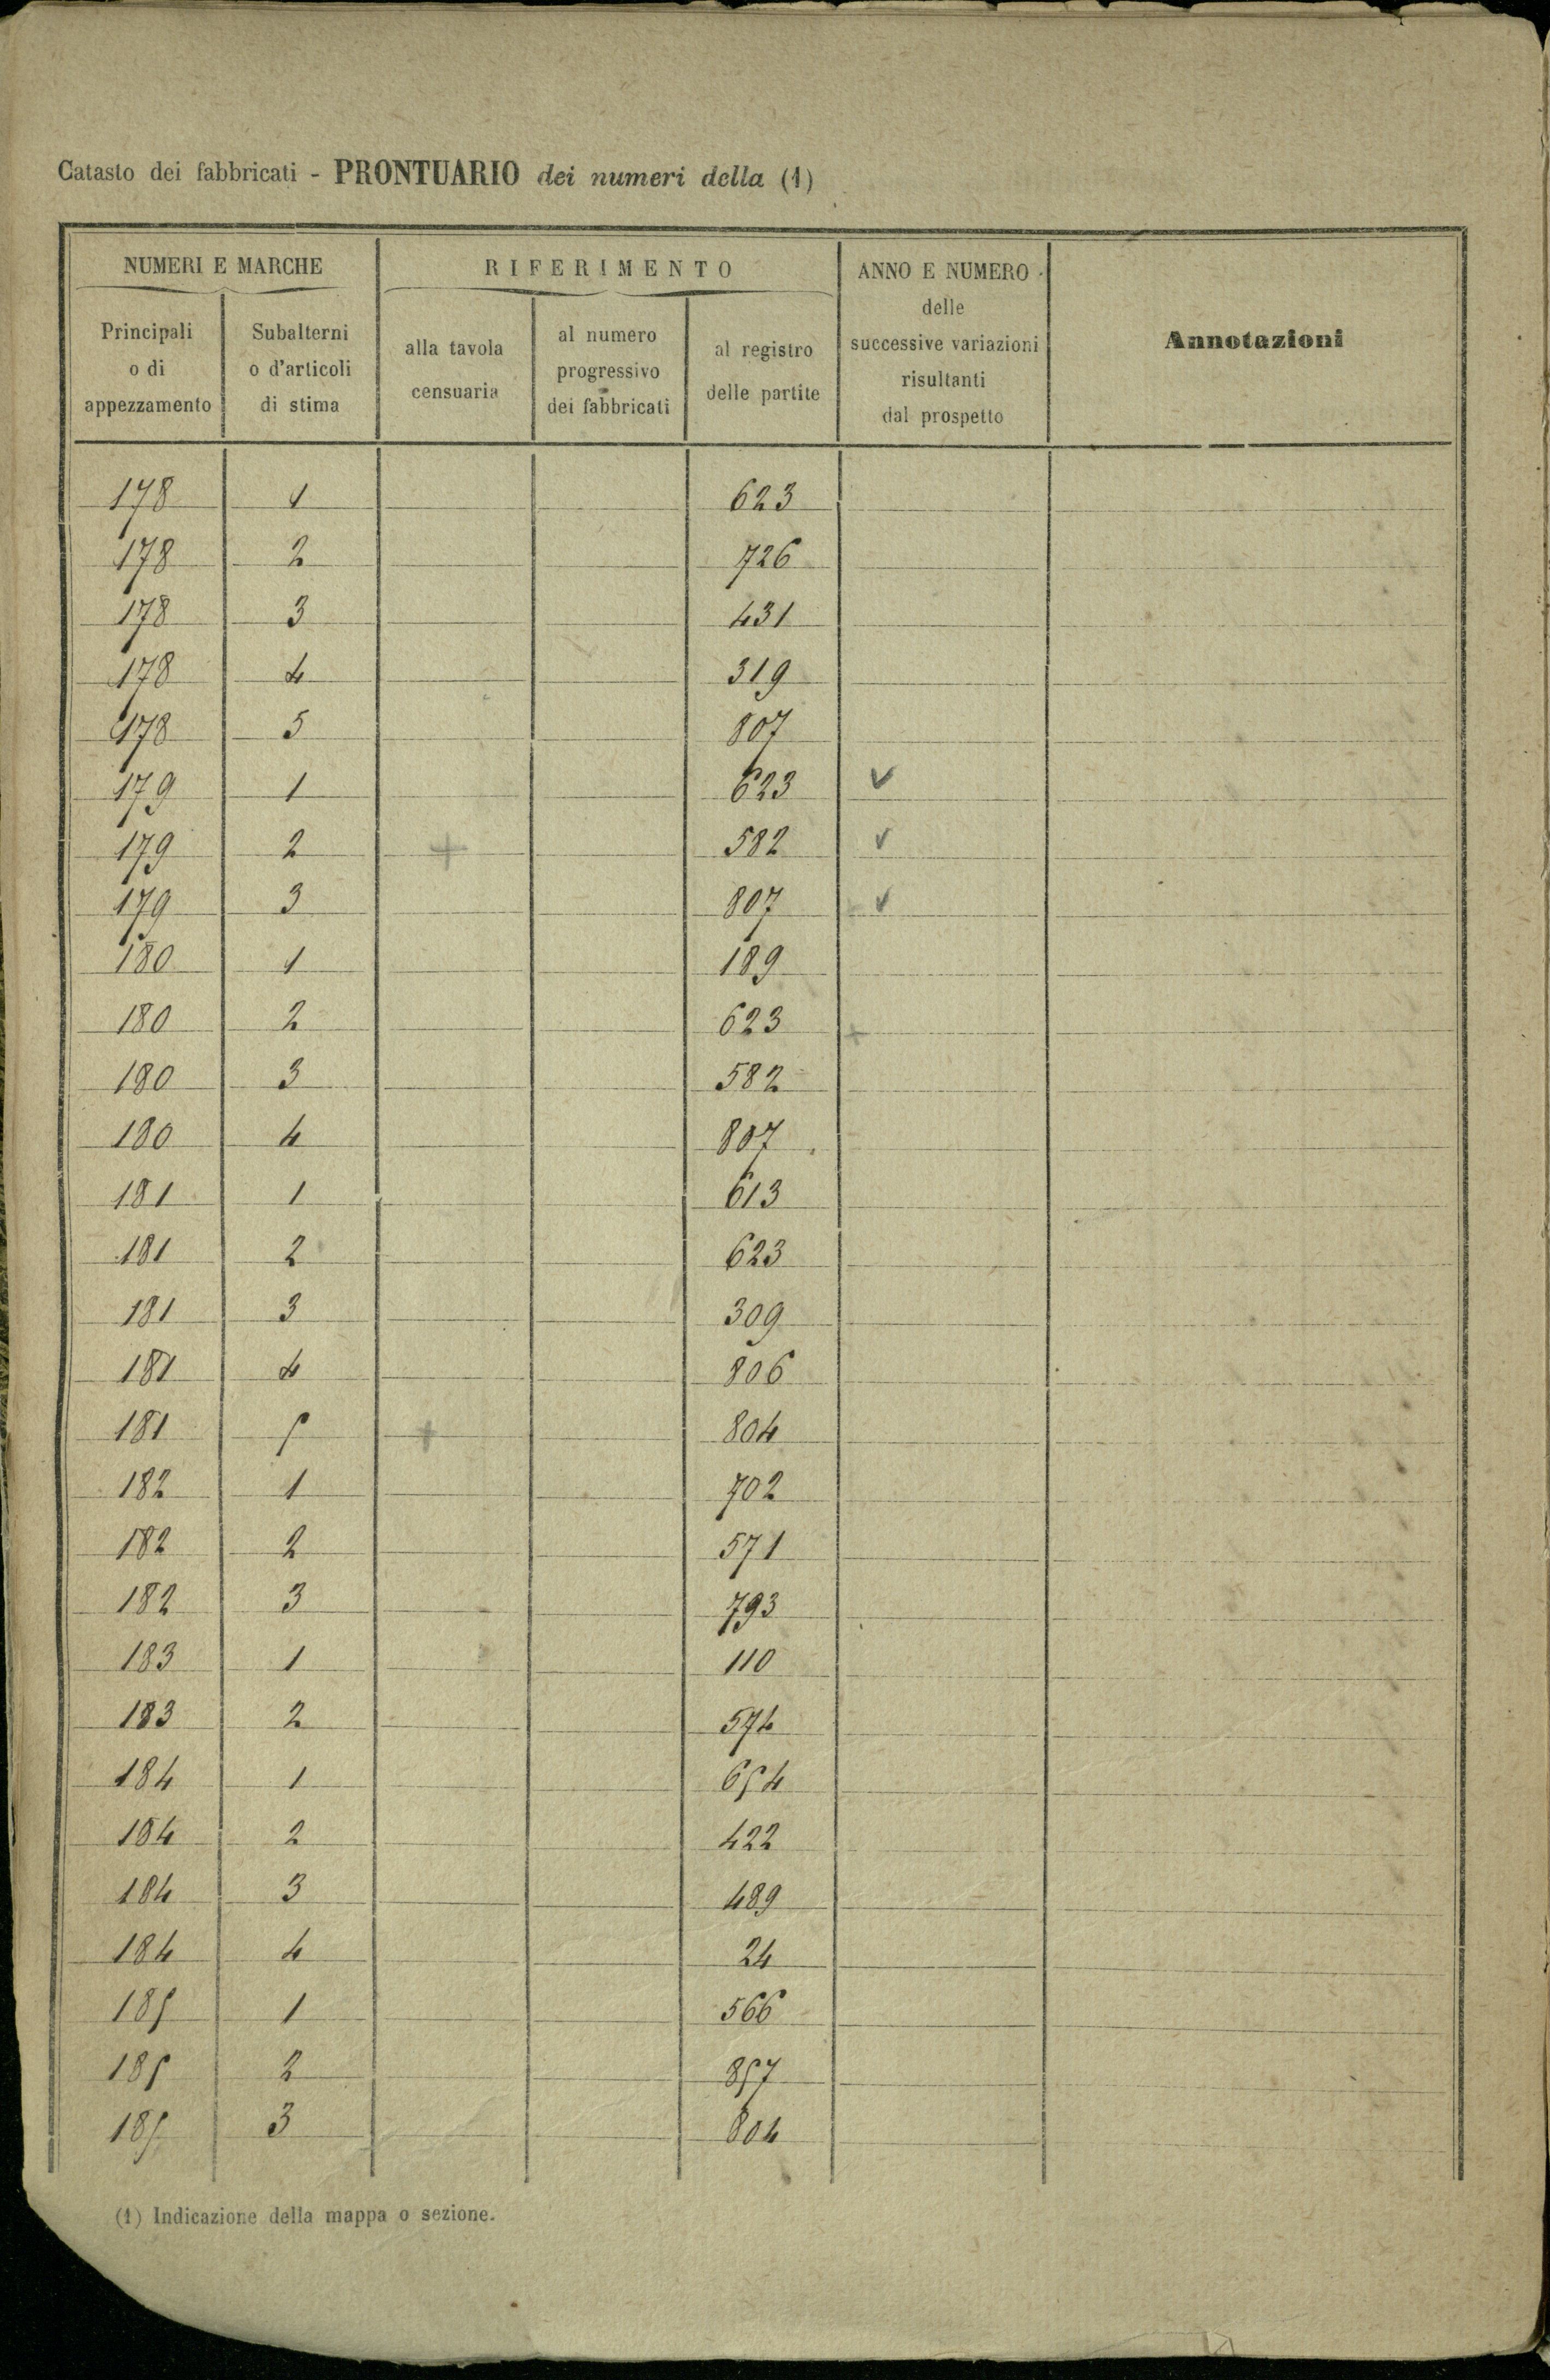 Catasto dei fabbricati - PRONTUARIO dei numeri della (1)
NUMERI E MARCHE RIFERIMENTO ANNO E NUMERO delle successive variazioni risultanti dal prospetto Annotazioni
Principali o di appezzamento Subalterni o d'articoli di stima alla tavola censuaria al numero progressivo dei fabbricati al registro delle partite
178 1 623
178 2 726
178 3 431
178 4 319
178 5 807
179 1 623 ✓
179 2 + 582 ✓
179 3 807 ✓
180 1 189
180 2 623 +
180 3 582
180 4 807
181 1 613
181 2 623
181 3 309
181 4 806
181 5 + 804
182 1 702
182 2 571
182 3 793
183 1 110
183 2 574
184 1 654
184 2 422
184 3 489
184 4 24
185 1 566
185 2 857
185 3 804
(1) Indicazione della mappa o sezione.